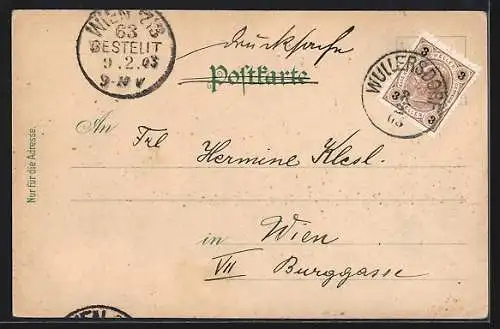 WIEN 7/3
63
BESTELLT
9.2.03
9-11 V
Drucksache
Postkarte
WULLERSDORF
8 2
03
3 3
3 3
An Frl Hermine Klesl.
Nur für die Adresse.
in Wien
VII Burggasse